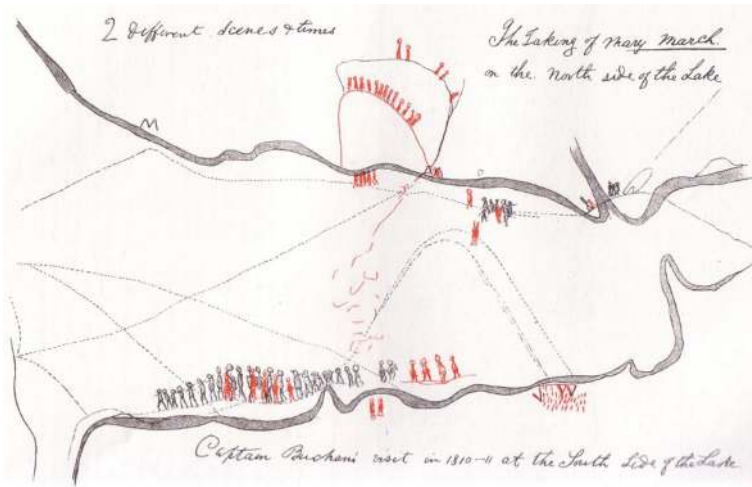 2 different scenes & times
The Taking of Mary March.
on the North side of the Lake
Captain Buchans visit in 1810-11 at the South Side of the Lake